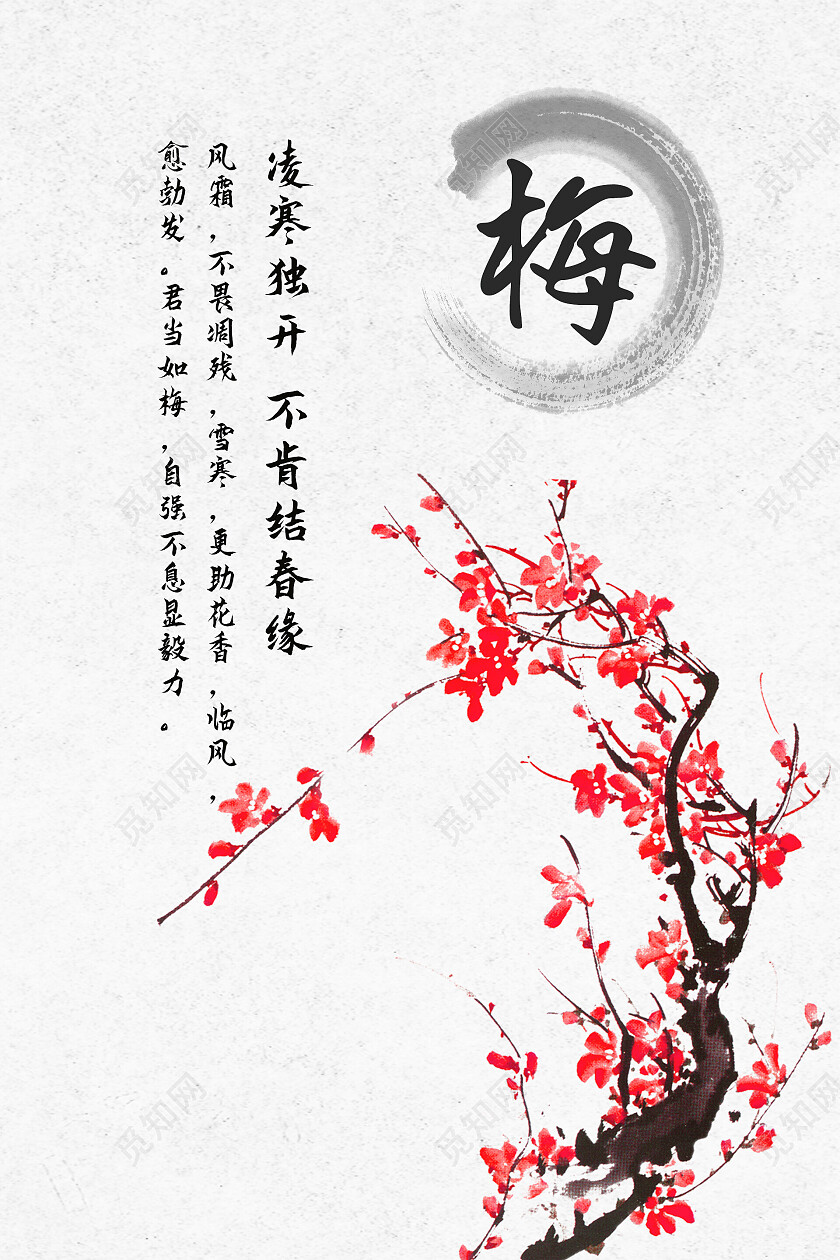 梅
凌寒独开 不肯结春缘
风霜，不畏凋残，雪寒，更助花香，临风，
愈勃发。君当如梅，自强不息显毅力。
觅知网